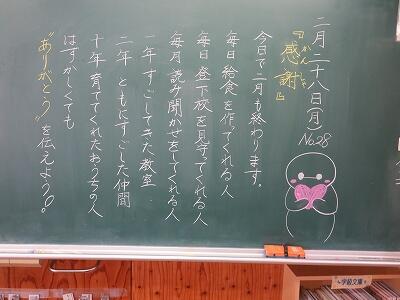 二月二十八日(月) No.28
『感謝』
かんしゃ
今日で二月も終わります。
毎日給食を作ってくれる人
毎日登下校を見守ってくれる人
毎月読み聞かせをしてくれる人
一年すごしてきた教室
二年ともにすごした仲間
十年育ててくれたおうちの人
はずかしくても
"ありがとう"を伝えよう!
学級文庫